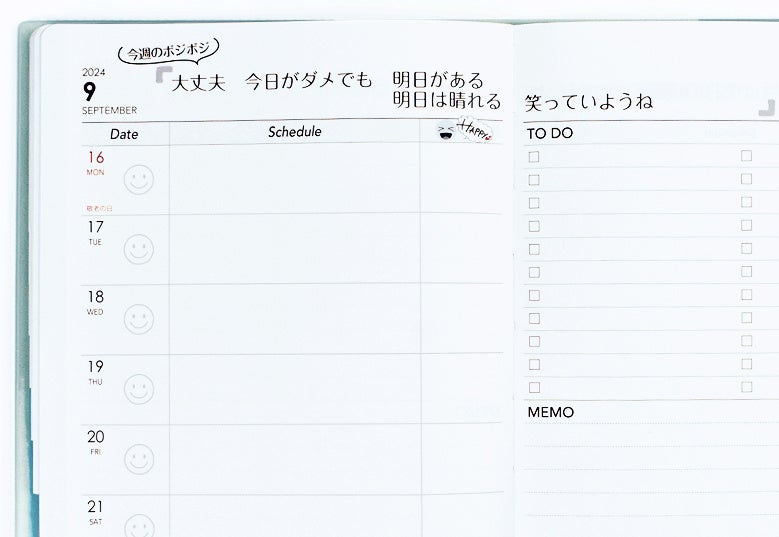 今週のポジポジ
2024
9
SEPTEMBER
大丈夫 今日がダメでも 明日がある
明日は晴れる
笑っていようね
Date Schedule HAPPY
16
MON
敬老の日
17
TUE
18
WED
19
THU
20
FRI
21
SAT
TO DO
MEMO